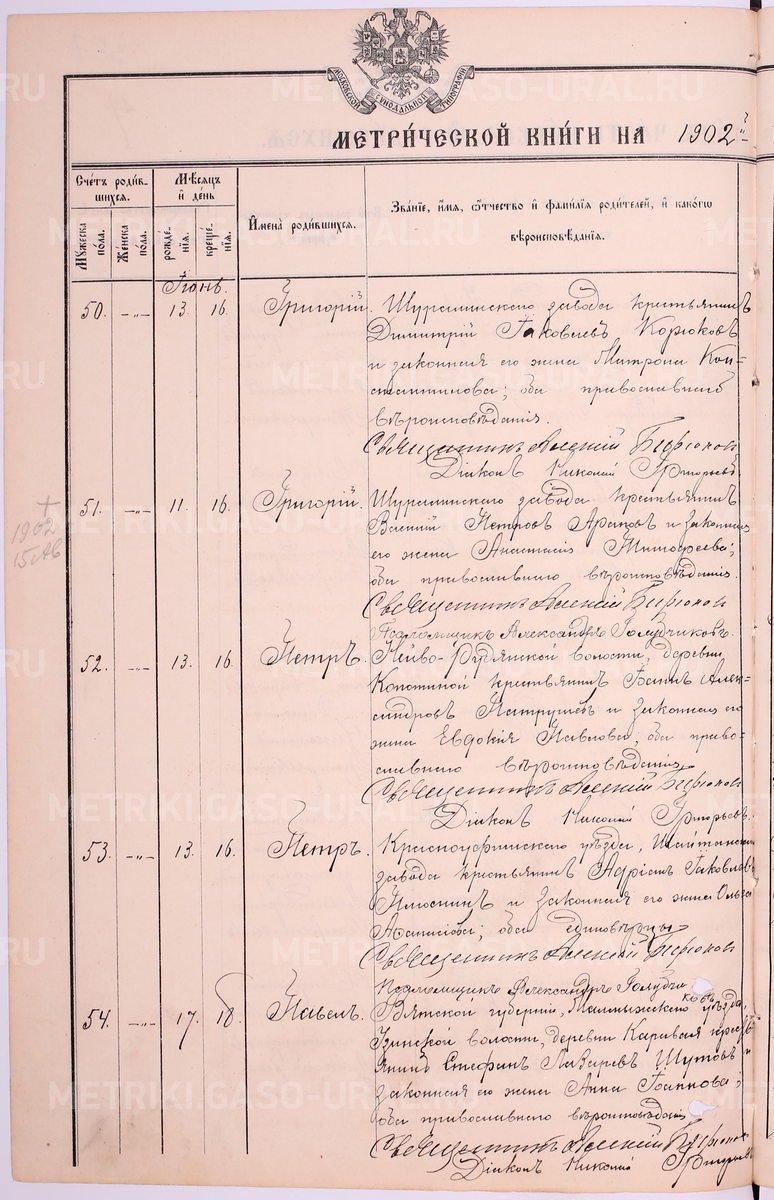 METRIKI.GASO-URAL.RU
МОСКОВСКОЙ СѴНОДАЛЬНОЙ ТИПОГРАФІИ
МЕТРИ́ЧЕСКОЙ КНИ́ГИ НА 1902
Сче́тъ роди́вшихся.
Му́жеска по́ла.
Же́нска по́ла.
Мѣ́сяцъ и҆ де́нь
рожде́нїѧ.
креще́нїѧ.
И҆мена̀ роди́вшихся.
Зва́нїе, и҆́мѧ, ѻ҆́тчество и҆ фами́лїѧ роди́телей, и҆ како́гѡ
вѣроисповѣ́данїѧ.
Іюнь.
50. —„— 13. 16. Григорій. Шуралинскаго завода крестьянинъ
Димитрій Іаковлевъ Корюковъ
и законная его жена Матрона Кон-
стантинова; оба православнаго
вѣроисповѣданія.
Священникъ Алексій Бирюков
Діаконъ Николай Григорьевъ
+
1902
15 Ав
51. —„— 11. 16. Григорій. Шуралинскаго завода крестьянинъ
Василій Петровъ Араповъ и законная
его жена Анастасія Тимофеева;
оба православнаго вѣроисповѣданія.
Священникъ Алексій Бирюков
Псаломщикъ Александръ Голубчиковъ.
52. —„— 13. 16. Петръ. Нейво-Рудянской волости, деревни
крестьянинъ Алек-
сандровъ Патрушевъ и законная его
жена Евдокія Павлова; оба право-
славнаго вѣроисповѣданія
Священникъ Алексій Бирюков
Діаконъ Николай Григорьевъ.
53. —„— 13. 16. Петръ. Красноуфимскаго уѣзда, Шайтанскаго
завода крестьянинъ Адріанъ Іаковлевъ
и законная его жена Ольга
Афанасіева; оба единовѣрцы
Священникъ Алексій Бирюков
Псаломщикъ Александръ Голубчиковъ
54. —„— 17. 18. Павелъ. Вятской губерніи, Малмыжскаго уѣзда,
волости, деревни
Стефанъ Лазаревъ Шутовъ и
законная его жена Анна Іоаннова;
оба православнаго вѣроисповѣданія
Священникъ Алексій Бирюков
Діаконъ Николай Григорьевъ